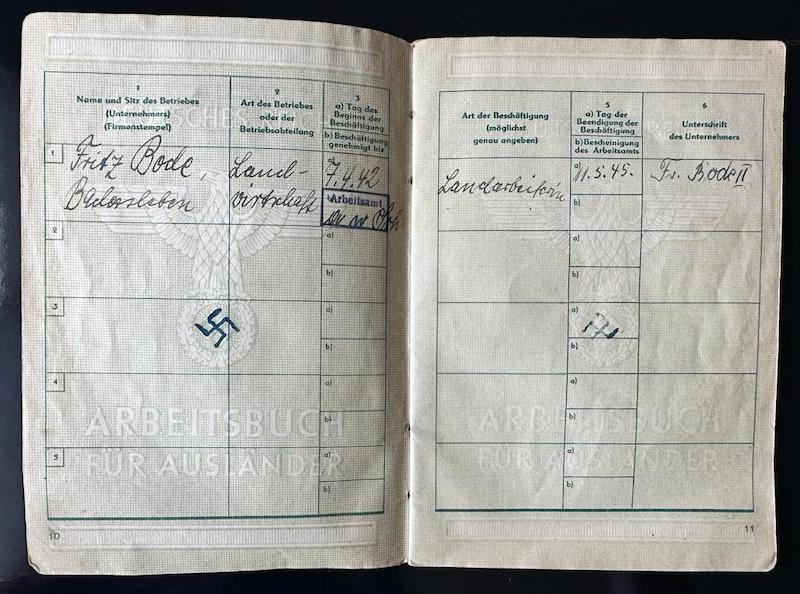 1
Name und Sitz des Betriebes
(Unternehmers)
(Firmenstempel)
2
Art des Betriebes
oder der
Betriebsabteilung
3
a) Tag des
Beginns der
Beschäftigung
b) Beschäftigung
genehmigt bis
1
Fritz Bode,
Badersleben
Land-
wirtschaft
a)
7.4.42
Arbeitsamt
2
a)
b)
3
a)
b)
4
a)
b)
5
a)
b)
ARBEITSBUCH
FÜR AUSLÄNDER
10
Art der Beschäftigung
(möglichst
genau angeben)
5
a) Tag der
Beendigung der
Beschäftigung
b) Bescheinigung
des Arbeitsamts
6
Unterschrift
des Unternehmers
Landarbeiterin
a) 11.5.45.
Fr. Bode II
b)
a)
b)
a)
b)
a)
b)
a)
b)
ARBEITSBUCH
FÜR AUSLÄNDER
11